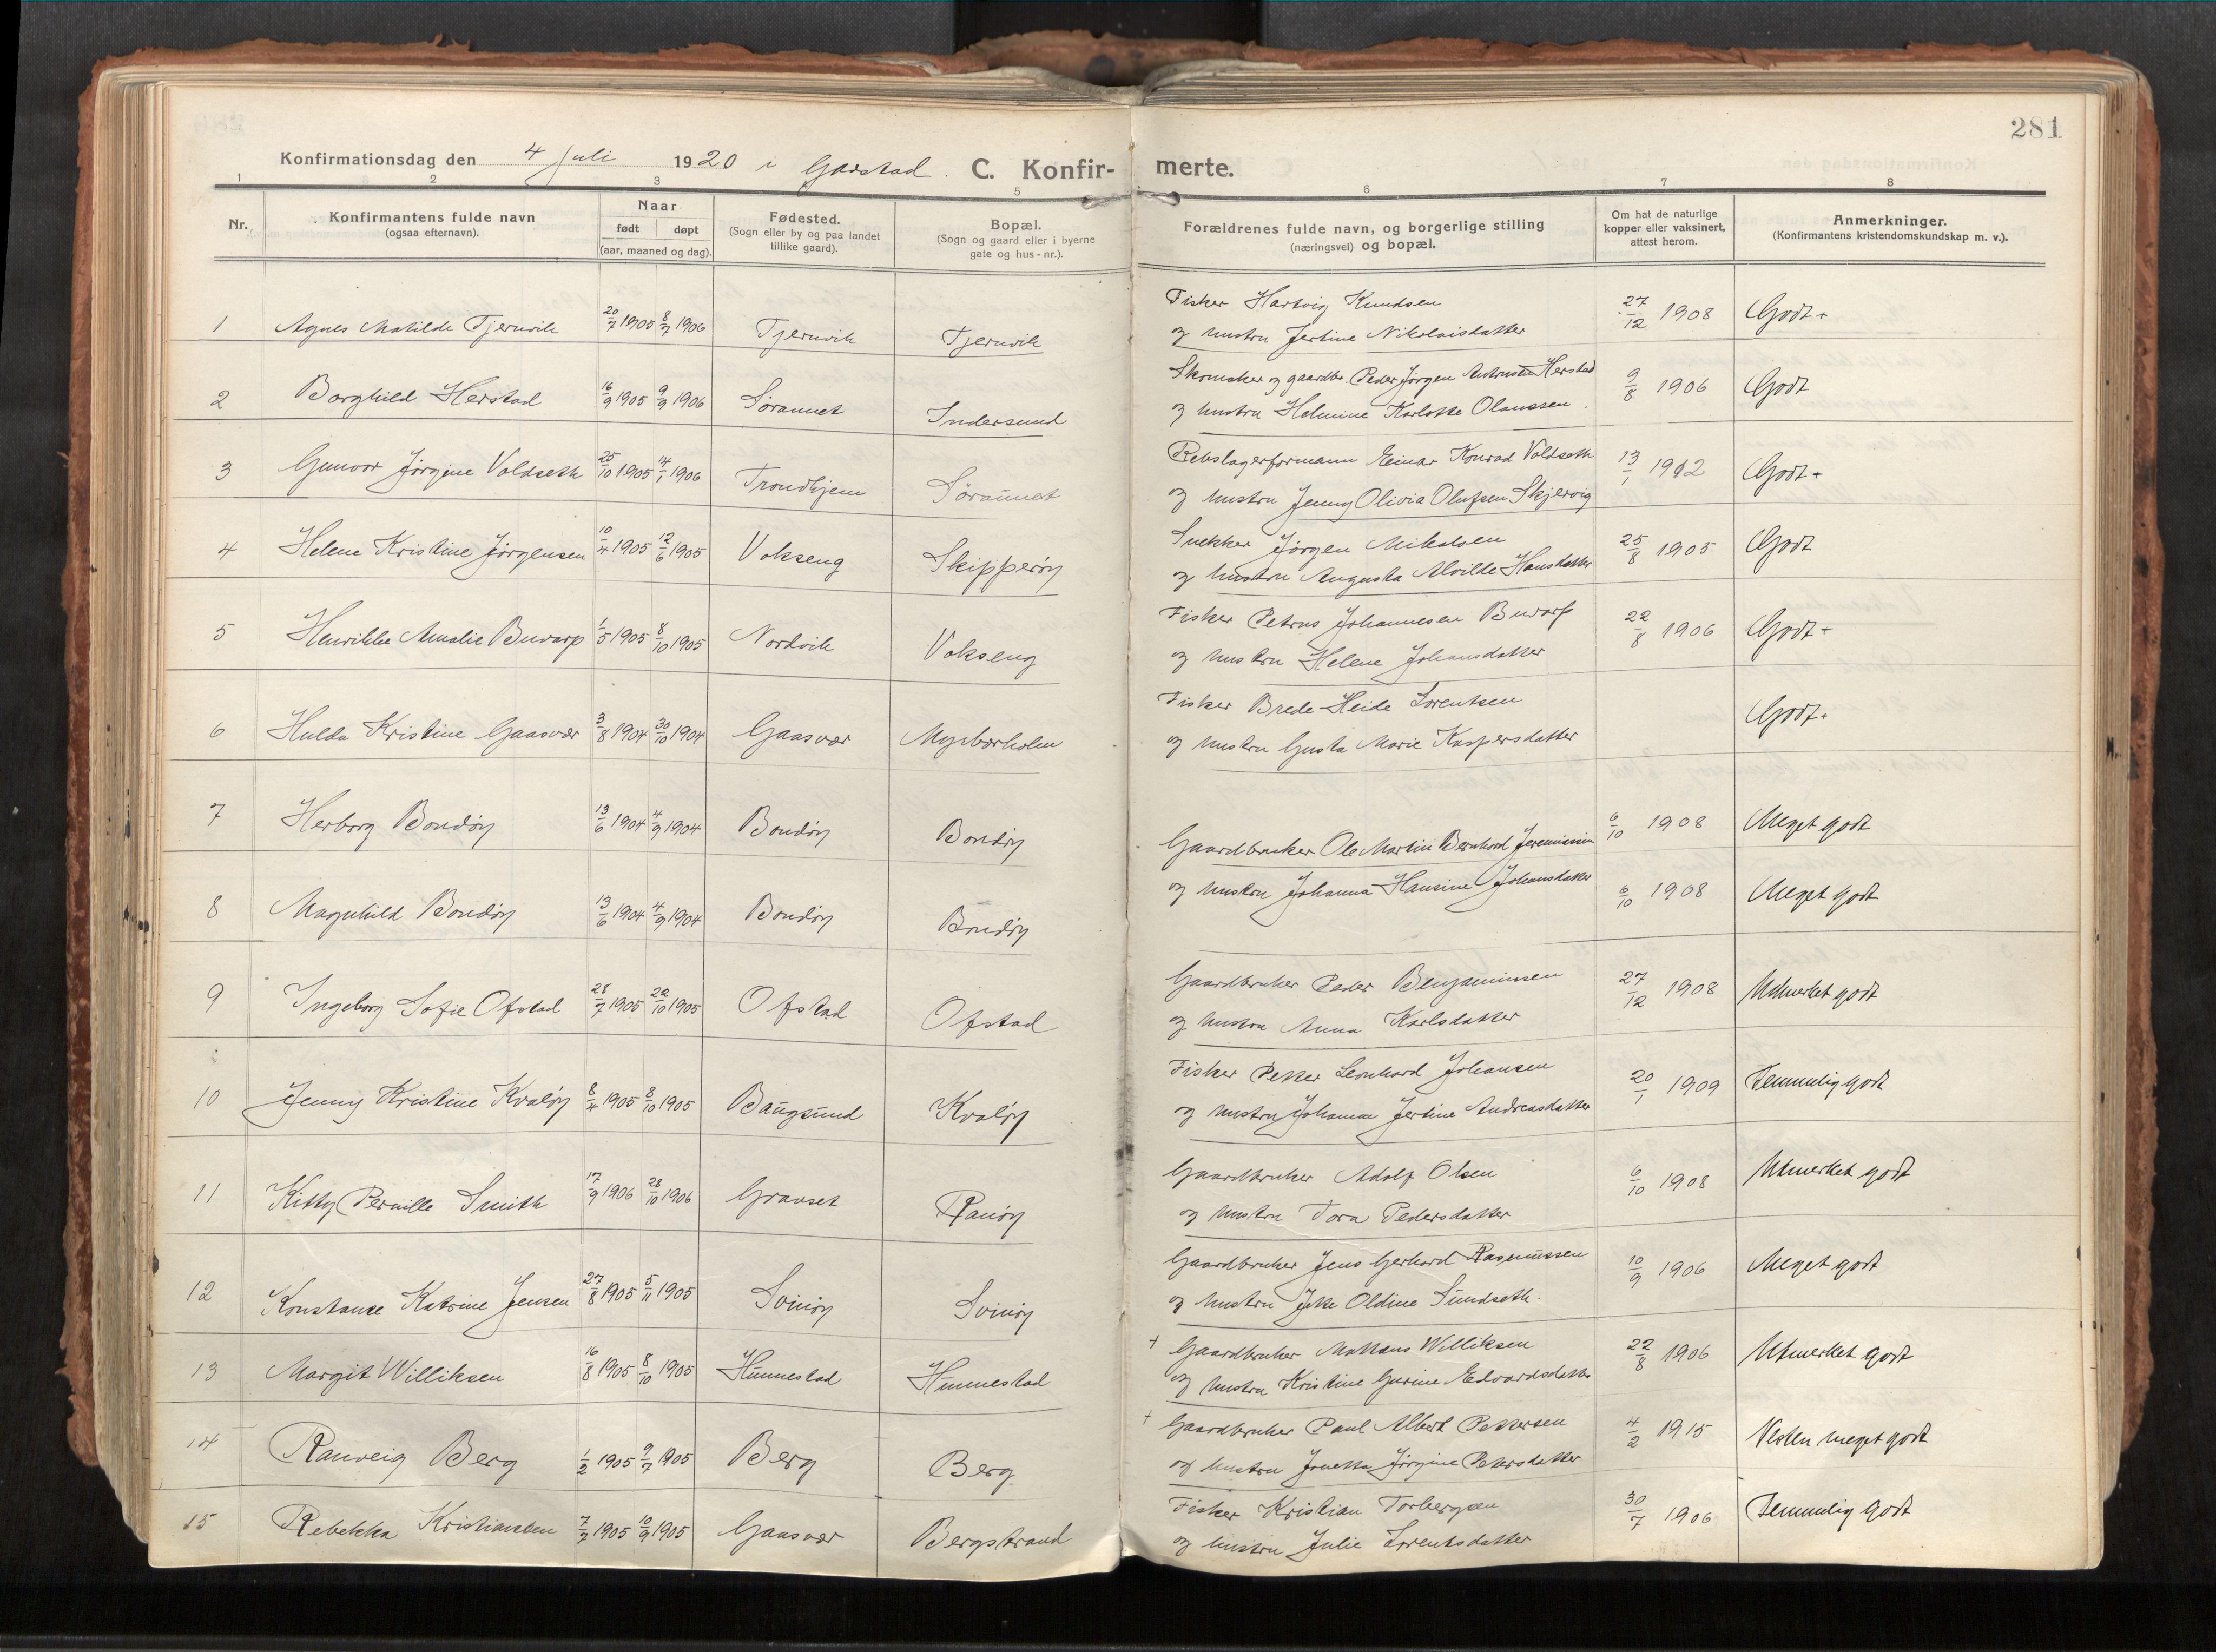 281
Konfirmationsdag den 4 Juli 1920 i Garstad. C. Konfirmerte.
1 2 3 5 6 7 8
Nr. Konfirmantens fulde navn (ogsaa efternavn). Naar født døpt (aar, maaned og dag). Fødested. (Sogn eller by og paa landet tillike gaard). Bopæl. (Sogn og gaard eller i byerne gate og hus-nr.). Forældrenes fulde navn, og borgerlige stilling (næringsvei) og bopæl. Om hat de naturlige kopper eller vaksinert, attest herom. Anmerkninger. (Konfirmantens kristendomskundskap m. v.).
1 Agnes Matilde Tjernvik 20/7 1905 8/7 1906 Tjernvik Tjernvik Fisker Hartvig Knudsen 27/12 1908 Godt+
og hustru Jertine Nikolaisdatter
2 Borghild Herstad 16/9 1905 9/9 1906 Sørannet Indersund Skomaker og gaardbr. Peder Jørgen Antonsen Herstad 9/8 1906 Godt
og hustru Helmine Karlotte Olaussen.
3 Gunvor Jørgine Voldseth 25/10 1905 14/1 1906 Trondhjem Sørannet Rebslagerformann Einar Konrad Voldseth 13/1 1912 Godt+
og hustru Jenny Olivia Olufsen Skjervig
4 Helene Kristine Jørgensen 10/4 1905 12/6 1905 Vokseng Skipperøy Snekker Jørgen Mikalsen 25/8 1905 Godt
og hustru Augusta Alvilde Hansdatter
5 Henrikke Amalie Buvarp 1/5 1905 8/10 1905 Nordvik Vokseng Fisker Petrus Johannesen Buvarp 22/8 1906 Godt+
og hustru Helene Johansdatter
6 Hulda Kristine Gaasvær 3/8 1904 30/10 1904 Gaasvær Mycbærholm Fisker Brede Heide Lorentsen Godt+
og hustru Gusta Marie Kaspersdatter
7 Herborg Bondøy 13/6 1904 4/9 1904 Bondøy Bondøy Gaardbruker Ole Martin Bernhard Jeremiassen 6/10 1908 Meget godt
8 Magnhild Bondøy 13/6 1904 4/9 1904 Bondøy Bondøy og hustru Johanna Hansine Johansdatter 6/10 1908 Meget godt
9 Ingeborg Sofie Ofstad 28/7 1905 22/10 1905 Ofstad Ofstad Gaardbruker Peder Benjaminsen 27/12 1908 Utmerket godt
og hustru Anna Karlsdatter
10 Jenny Kristine Kvaløy 8/4 1905 8/10 1905 Baugsund Kvaløy Fisker Petter Leonhard Johansen 20/1 1909 Temmelig godt
og hustru Johanna Jertine Andreasdatter
11 Kitty Pernille Smith 17/9 1906 28/10 1906 Gravset Ranøy Gaardbruker Adolf Olsen 6/10 1908 Utmerket godt
og hustru Tora Pedersdatter
12 Konstanse Katrine Jensen 27/8 1905 5/11 1905 Svinøy Svinøy Gaardbruker Jens Gerhard Rasmussen 10/9 1906 Meget godt
og hustru Jette Oldine Sundseth.
13 Margit Williksen 16/8 1905 8/10 1905 Hunnestad Hunnestad + Gaardbruker Mattæus Williksen 22/8 1906 Utmerket godt
og hustru Kristine Gurine Edvardsdatter
14 Ranveig Berg 1/2 1905 9/7 1905 Berg Berg + Gaardbruker Paul Albert Pettersen 4/2 1915 Nesten meget godt
og hustru Jonetta Jørgine Petersdatter
15 Rebekka Kristiansen 7/2 1905 10/9 1905 Gaasvær Bergstrand Fisker Kristian Torbergsen 30/7 1906 Temmelig godt
og hustru Julie Lorentsdatter